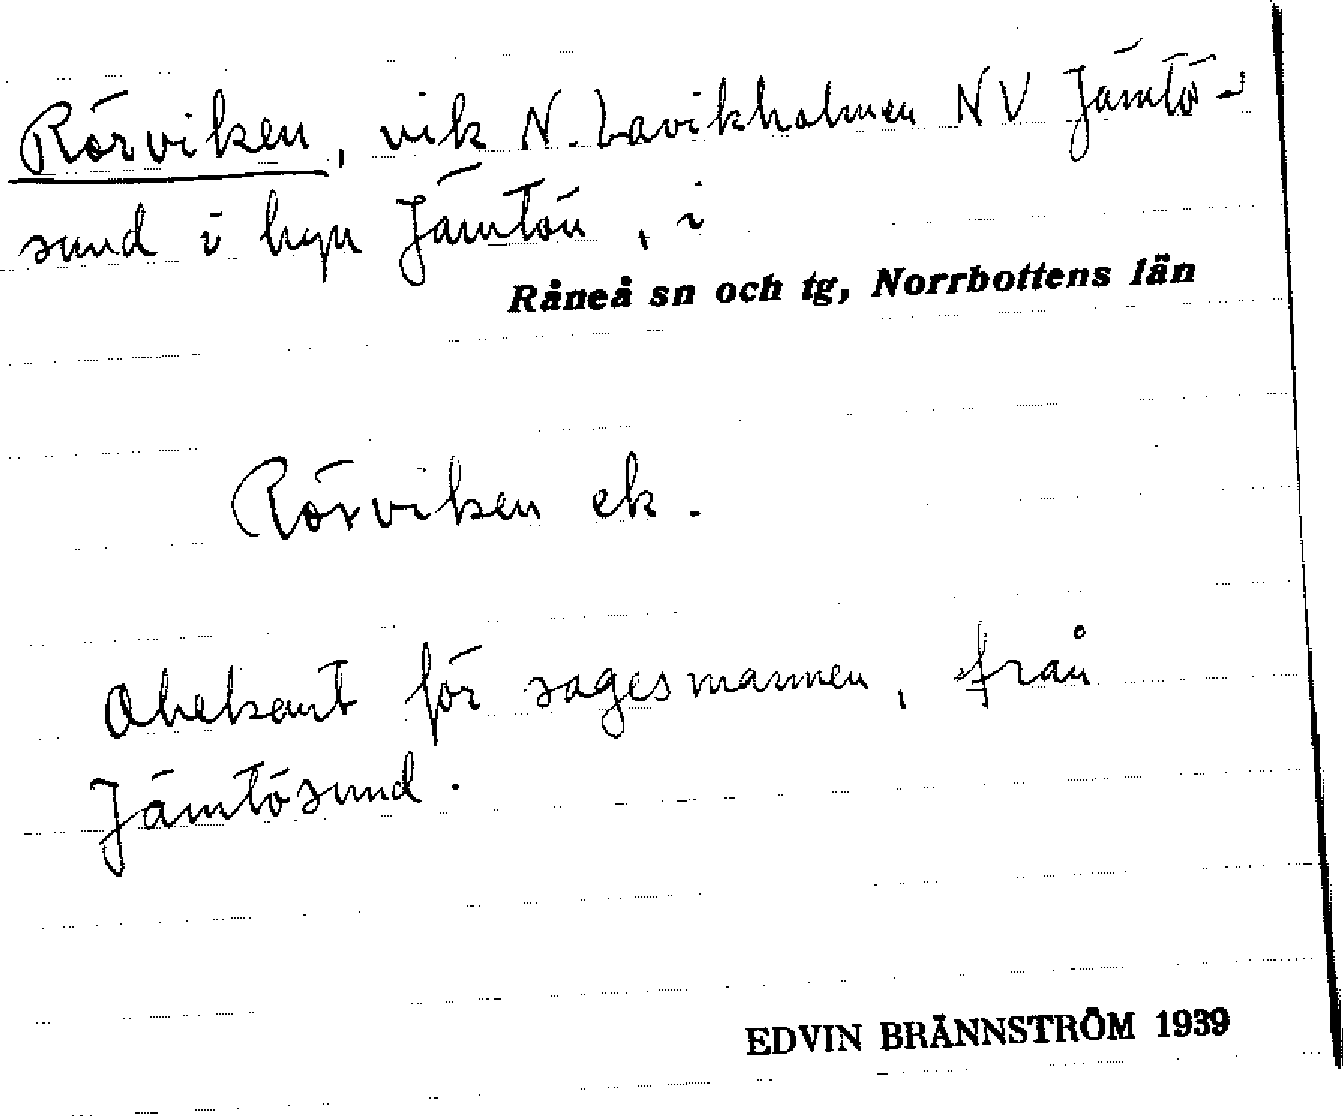 Rörviken, vik N. Lavikholmen NV Jämtö-
sund i byn Jämtön, i
Råneå sn och tg, Norrbottens län
Rörviken ek.
Obekant för sagesmannen, från
Jämtösund.
EDVIN BRÄNNSTRÖM 1939